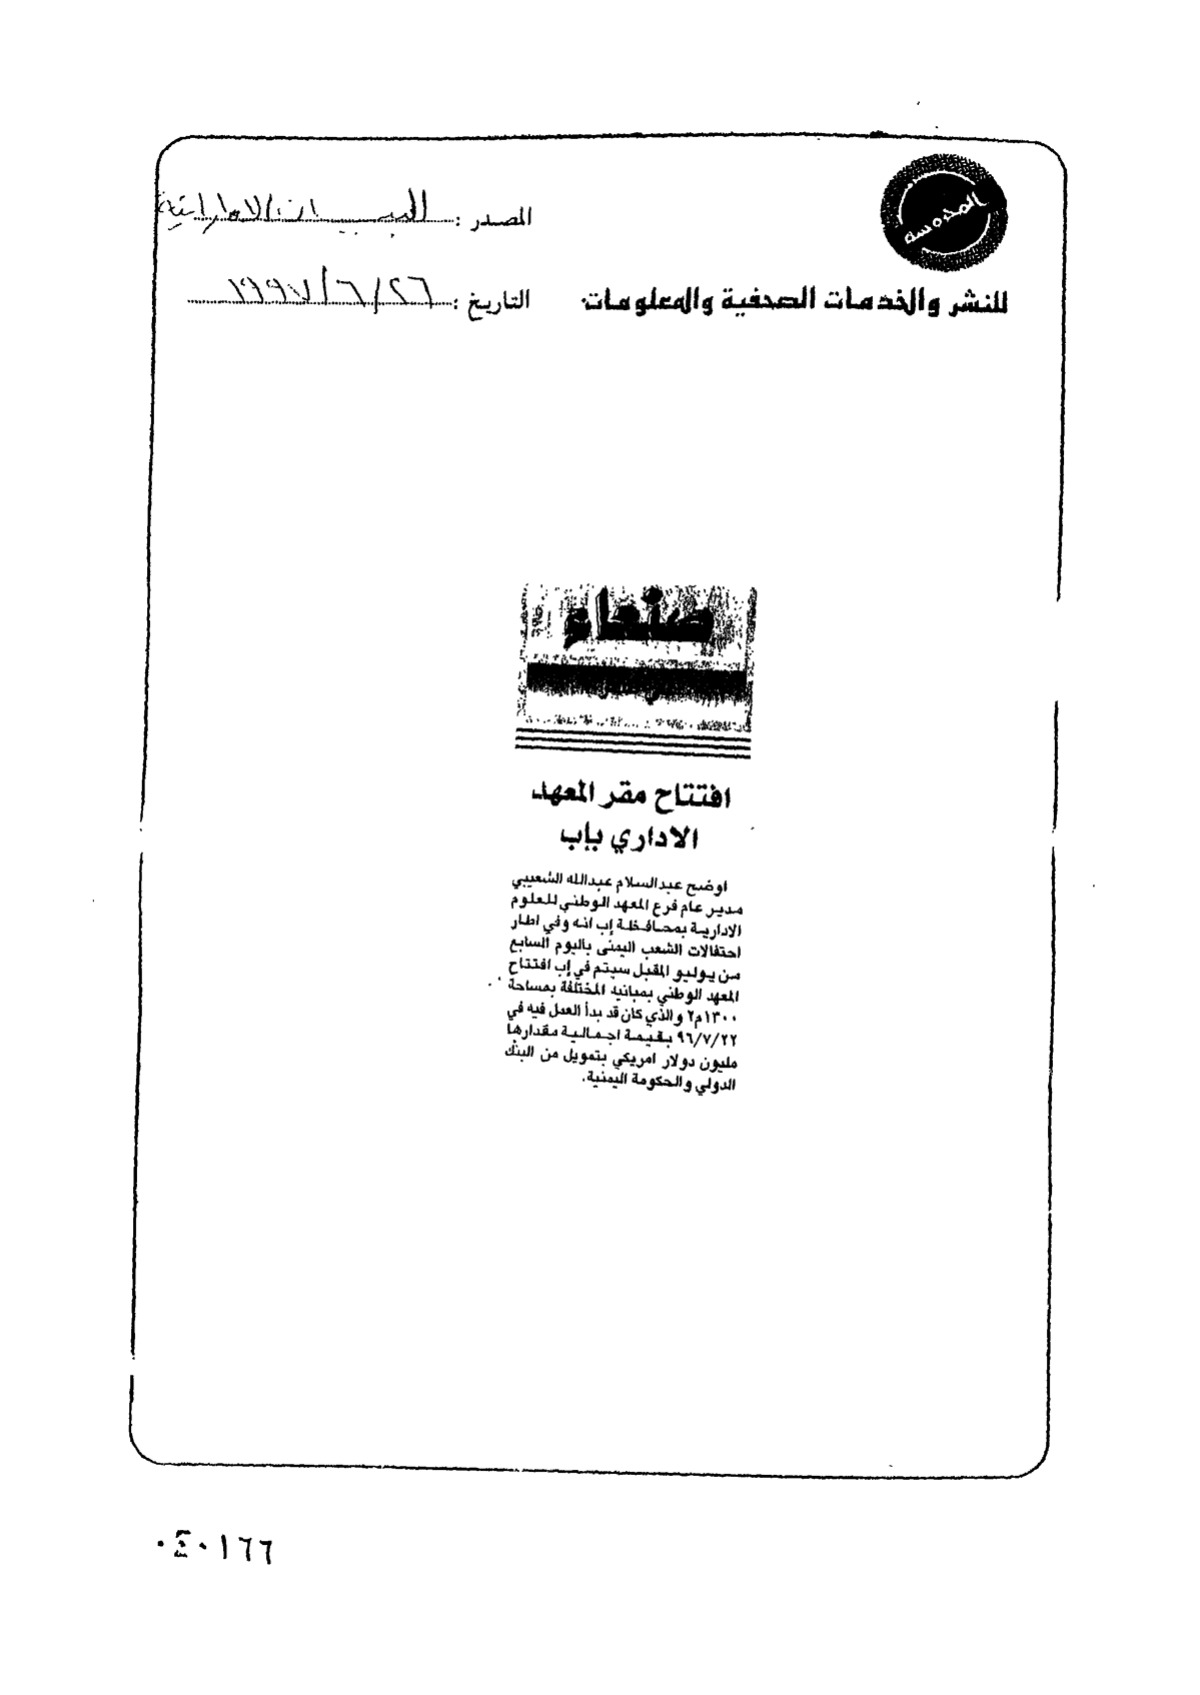 المحروسة
المصدر : البيان الاماراتية
للنشر والخدمات الصحفية والمعلومات
التاريخ : ٢٦/٦/١٩٩٧
صنعاء
افتتاح مقر المعهد
الاداري بإب
اوضح عبدالسلام عبدالله الشعيبي
مدير عام فرع المعهد الوطني للعلوم
الادارية بمحافظة إب انه وفي اطار
احتفالات الشعب اليمنى باليوم السابع
من يوليو المقبل سيتم في إب افتتاح
المعهد الوطني بمبانيه المختلفة بمساحة
١٣٠٠م٢ والذي كان قد بدأ العمل فيه في
٩٦/٧/٢٢ بقيمة اجمالية مقدارها
مليون دولار امريكي بتمويل من البنك
الدولي والحكومة اليمنية.
٠٤٠١٦٦